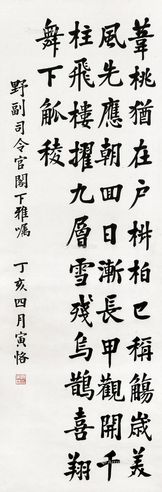 葦桃猶在戶枡柏已稱觴歲美
風先應朝囬日漸長甲觀開千
柱飛樓擢九層雪殘烏鵲喜翔
舞下觚稜
野副司令官閣下雅囑 丁亥四月寅恪